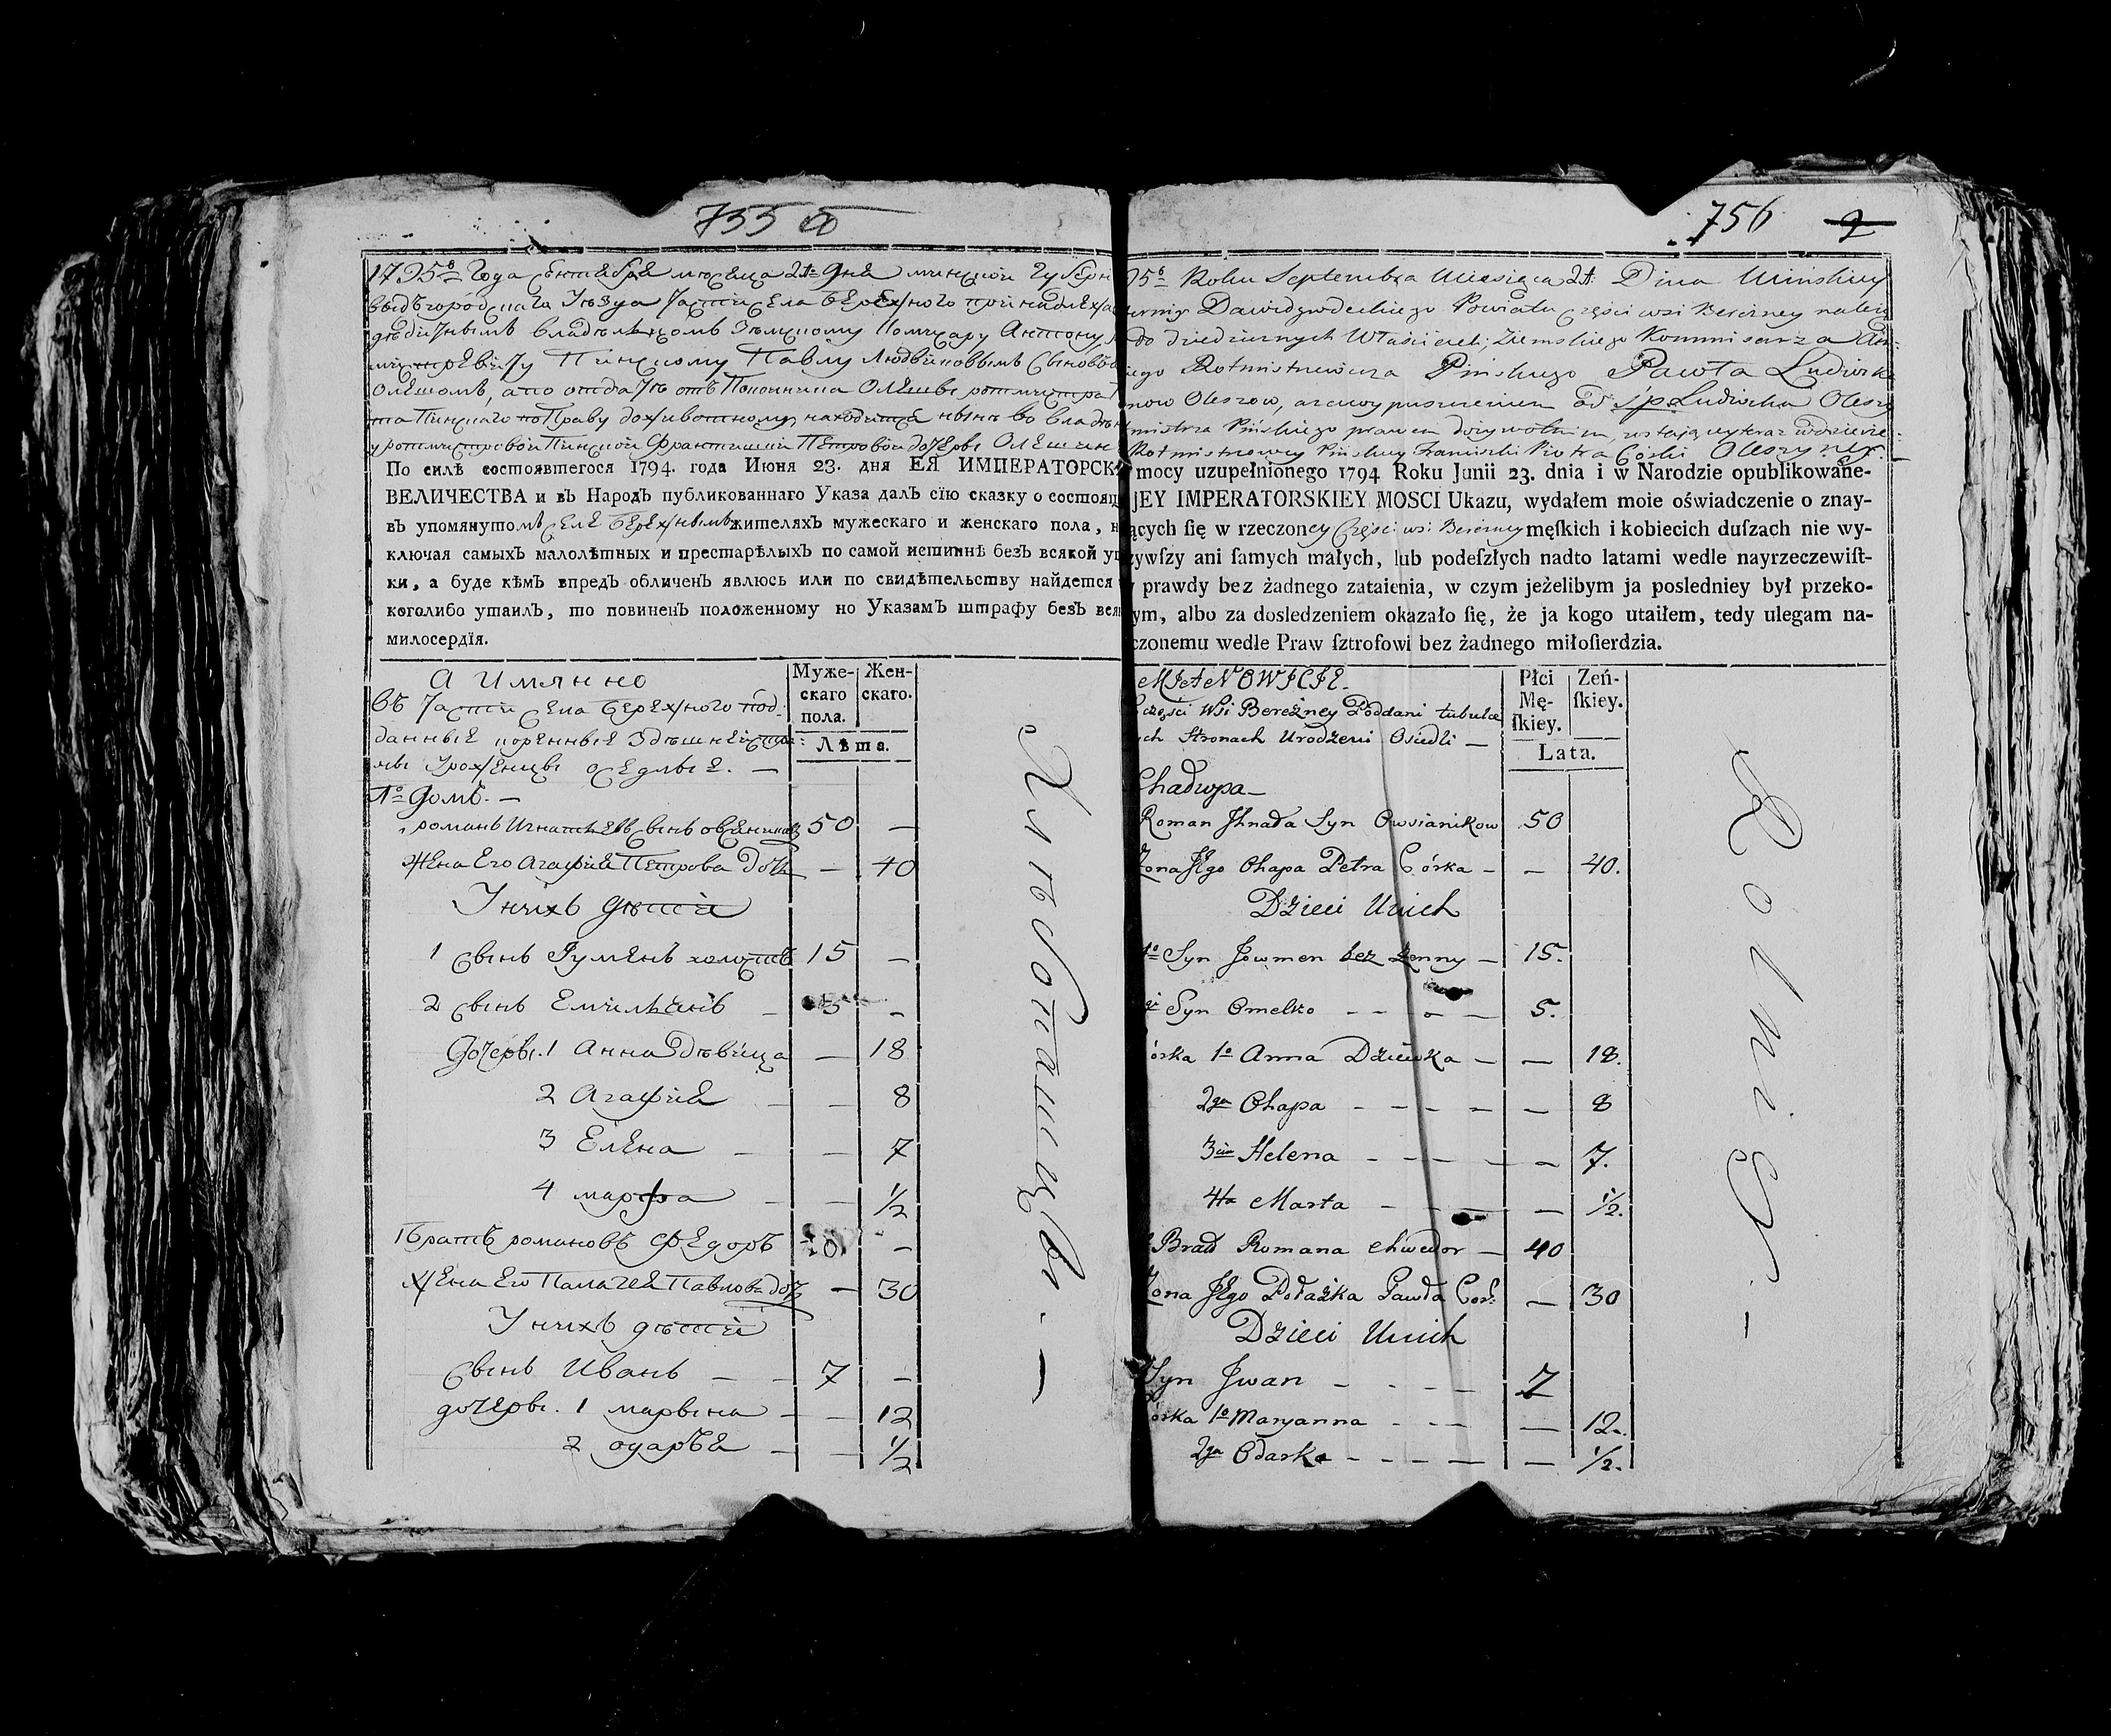 755 об
1795го Года Сентября месяца 21го дня Минской Губерн
выдгородскаго Уезда части села Бережного принадлежа
дедичным владельцом Земскому Комисару Антону
Пинскому Павлу Людвиковым Сыновьям
Олешом, а по отдаче от Покойника Олеши ротмистра
Пинскаго по Праву доживотному находится ныне во владен
у ротмистровой Пинской Францишки Петровой дочери Олешин
По силѣ состоявшегося 1794. года Июня 23. дня ЕЯ ИМПЕРАТОРСК
ВЕЛИЧЕСТВА и въ Народъ публикованнаго Указа далъ сїю сказку о состоящ
въ упомянутомъ селе Бережнымъ жителяхъ мужескаго и женскаго пола, н
ключая самыхъ малолѣтныхъ и престарѣлыхъ по самой истиннѣ безъ всякой у
ки, а буде кѣмъ впредъ обличенъ явлюсь или по свидѣтельству найдется
коголибо утаилъ, то повиненъ положенному по Указамъ штрафу безъ вся
милосердїя.
А Имянно
Муже-скаго пола. Жен-скаго.
Лѣта.
Въ части села Бережного под-
данныя коренныя здешней сторо-
ны Урожденцы оседлые. —
1о Домъ. —
романъ Игнатьевъ сынъ овсяниковъ 50 —
Жена Его Агафия Петрова дочь — 40
У нихъ детей
1 сынъ Гуменъ холостъ 15 —
2 сынъ Емильянъ — 5 —
Дочеры. 1 Анна девица — 18
2 Агафия — — 8
3 Елена — — 7
4 марфа — — 1/2
Братъ романовъ Федоръ 40 —
Жена Его Палагея Павлова дочь — 30
У нихъ детей
Сынъ Иванъ — — 7 —
дочеры. 1 марьяна — — 12
2 одарья — — 1/2
Хлюбошицы. —
756 2
95о Roku Septembra Miesiąca 21 Dnia Minskiey
Dawidgrodeckiego Powiatu części wsi Bereżney należ
do dziedzicznych Właścicieli; Ziemskiego Kommisarza An-
iego Rotmistrzewicza Pińskiego Pawła Ludwika
now Oleszow, arcowy puszczeniem od ś: p: Ludwika Olesz
mistrza Pińskiego prawem dożywotnim, zostaiącey teraz wdzierże-
Rotmistrzowey Pińskiey Franciszki Piotra Córki Oleszyney. —
mocy uzupełnionego 1794 Roku Junii 23. dnia i w Narodzie opublikowane-
JEY IMPERATORSKIEY MOSCI Ukazu, wydałem moie oświadczenie o znay-
ących ſię w rzeczoney Części wsi Bereżney męſkich i kobiecich duſzach nie wy-
zywſzy ani ſamych małych, lub podeſzłych nadto latami wedle nayrzeczewiſt-
y prawdy bez żadnego zataienia, w czym jeżelibym ja posledniey był przeko-
ym, albo za dosledzeniem okazało ſię, że ja kogo utaiłem, tedy ulegam na-
czonemu wedle Praw ſztrofowi bez żadnego miłoſierdzia.
MIANOWICIE.
Płci Mę-ſkiey. Zeń-ſkiey.
Lata.
części Wsi Bereżney Poddani tubulce
ch Stronach Urodzeni Osiedli —
Chadupa —
Roman Ihnata Syn Owsianikow 50
Zona Jego Ohapa Petra Córka — — 40.
Dzieci Unich
1o Syn Jowmen bez zenny — 15.
gi Syn Omelko — — — — 5.
órka 1o Anna Dziewka — — 18.
2ga Ohapa — — — — — 8
3cia Helena — — — — — 7.
4ta Marta — — — — — 1/2.
Brad Romana Chwedor — 40
Zona Jego Połażka Pawła Cor: — 30
Dzieci Unich
Syn Jwan — — — — 7
órka 1o Maryanna — — — — 12.
2ga Odarka — — — — — 1/2.
Rolnicy —